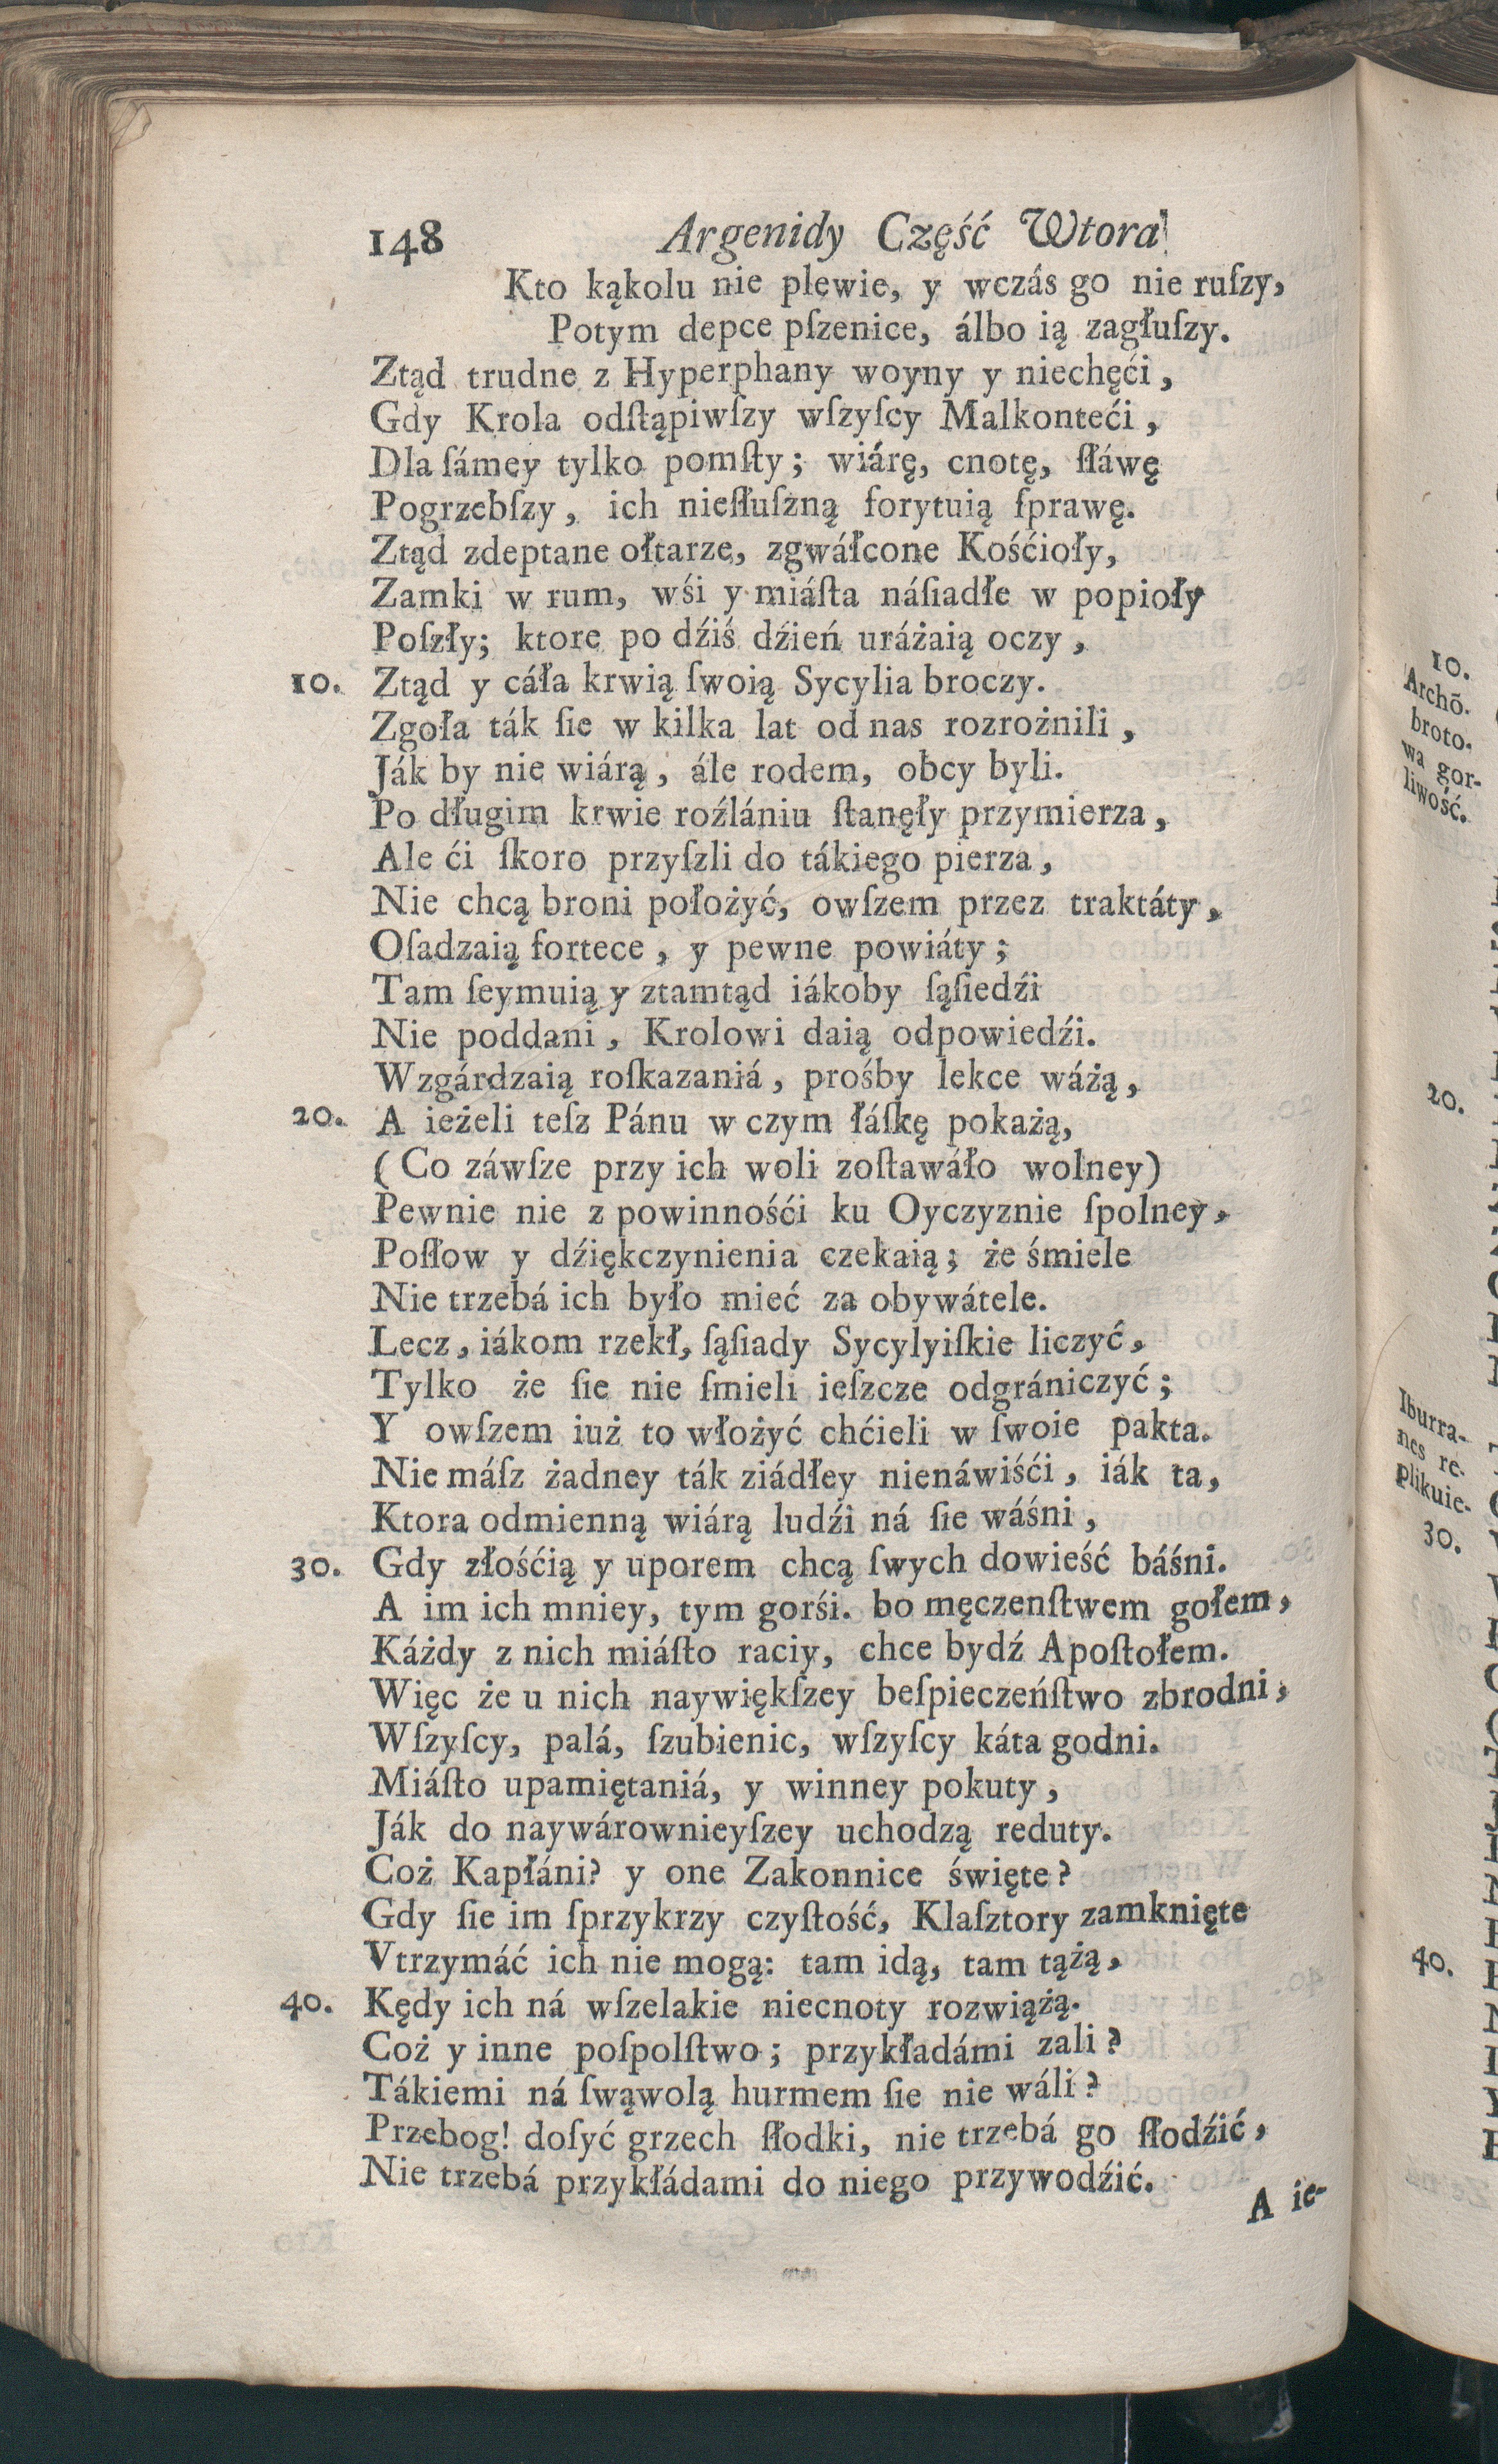 148 Argenidy Część Wtora
Kto kąkolu nie plewie, y wczás go nie ruſzy,
Potym depce pſzenice, álbo ią zagłuſzy.
Ztąd trudne z Hyperphany woyny y niechęći,
Gdy Krola odſtąpiwſzy wſzyſcy Malkonteći,
Dla ſámey tylko pomſty; wiárę, cnotę, ſłáwę
Pogrzebſzy, ich nieſłuſzną forytuią ſprawę.
Ztąd zdeptane ołtarze, zgwáłcone Kośćioły,
Zamki w rum, wśi y miáſta náſiadłe w popioły
Poſzły; ktore po dźiś dźień uráżaią oczy,
10. Ztąd y cáła krwią ſwoią Sycylia broczy.
Zgoła ták ſie w kilka lat od nas rozrożnili,
Ják by nie wiárą, ále rodem, obcy byli.
Po długim krwie roźlániu ſtanęły przymierza,
Ale ći ſkoro przyſzli do tákiego pierza,
Nie chcą broni położyć, owſzem przez traktáty,
Oſadzaią fortece, y pewne powiáty;
Tam ſeymuią y ztamtąd iákoby ſąſiedźi
Nie poddani, Krolowi daią odpowiedźi.
Wzgárdzaią roſkazaniá, prośby lekce wáżą,
20. A ieżeli teſz Pánu w czym łáſkę pokażą,
(Co záwſze przy ich woli zoſtawáło wolney)
Pewnie nie z powinnośći ku Oyczyznie ſpolney,
Poſłow y dźiękczynienia czekaią; że śmiele
Nie trzebá ich było mieć za obywátele.
Lecz, iákom rzekł, ſąſiady Sycylyiſkie liczyć,
Tylko że ſie nie ſmieli ieſzcze odgrániczyć;
Y owſzem iuż to włożyć chćieli w ſwoie pakta.
Nie máſz żadney ták ziádłey nienáwiśći, iák ta,
Ktora odmienną wiárą ludźi ná ſie wáśni,
30. Gdy złośćią y uporem chcą ſwych dowieść báśni.
A im ich mniey, tym gorśi. bo męczenſtwem gołem,
Káżdy z nich miáſto raciy, chce bydź Apoſtołem.
Więc że u nich naywiękſzey beſpieczeńſtwo zbrodni,
Wſzyſcy, palá, ſzubienic, wſzyſcy káta godni.
Miáſto upamiętaniá, y winney pokuty,
Ják do naywárownieyſzey uchodzą reduty.
Coż Kapłáni? y one Zakonnice święte?
Gdy ſie im ſprzykrzy czyſtość, Klaſztory zamknięte
Vtrzymáć ich nie mogą: tam idą, tam tążą,
40. Kędy ich ná wſzelakie niecnoty rozwiążą.
Coż y inne poſpolſtwo; przykładámi zali?
Tákiemi ná ſwąwolą hurmem ſie nie wáli?
Przebog! doſyć grzech ſłodki, nie trzebá go ſłodźić,
Nie trzebá przykłádami do niego przywodźić.
A ie-
10.
Archō-
broto-
wa gor-
liwość.
20.
Iburra-
nes re-
plikuie-
30.
40.